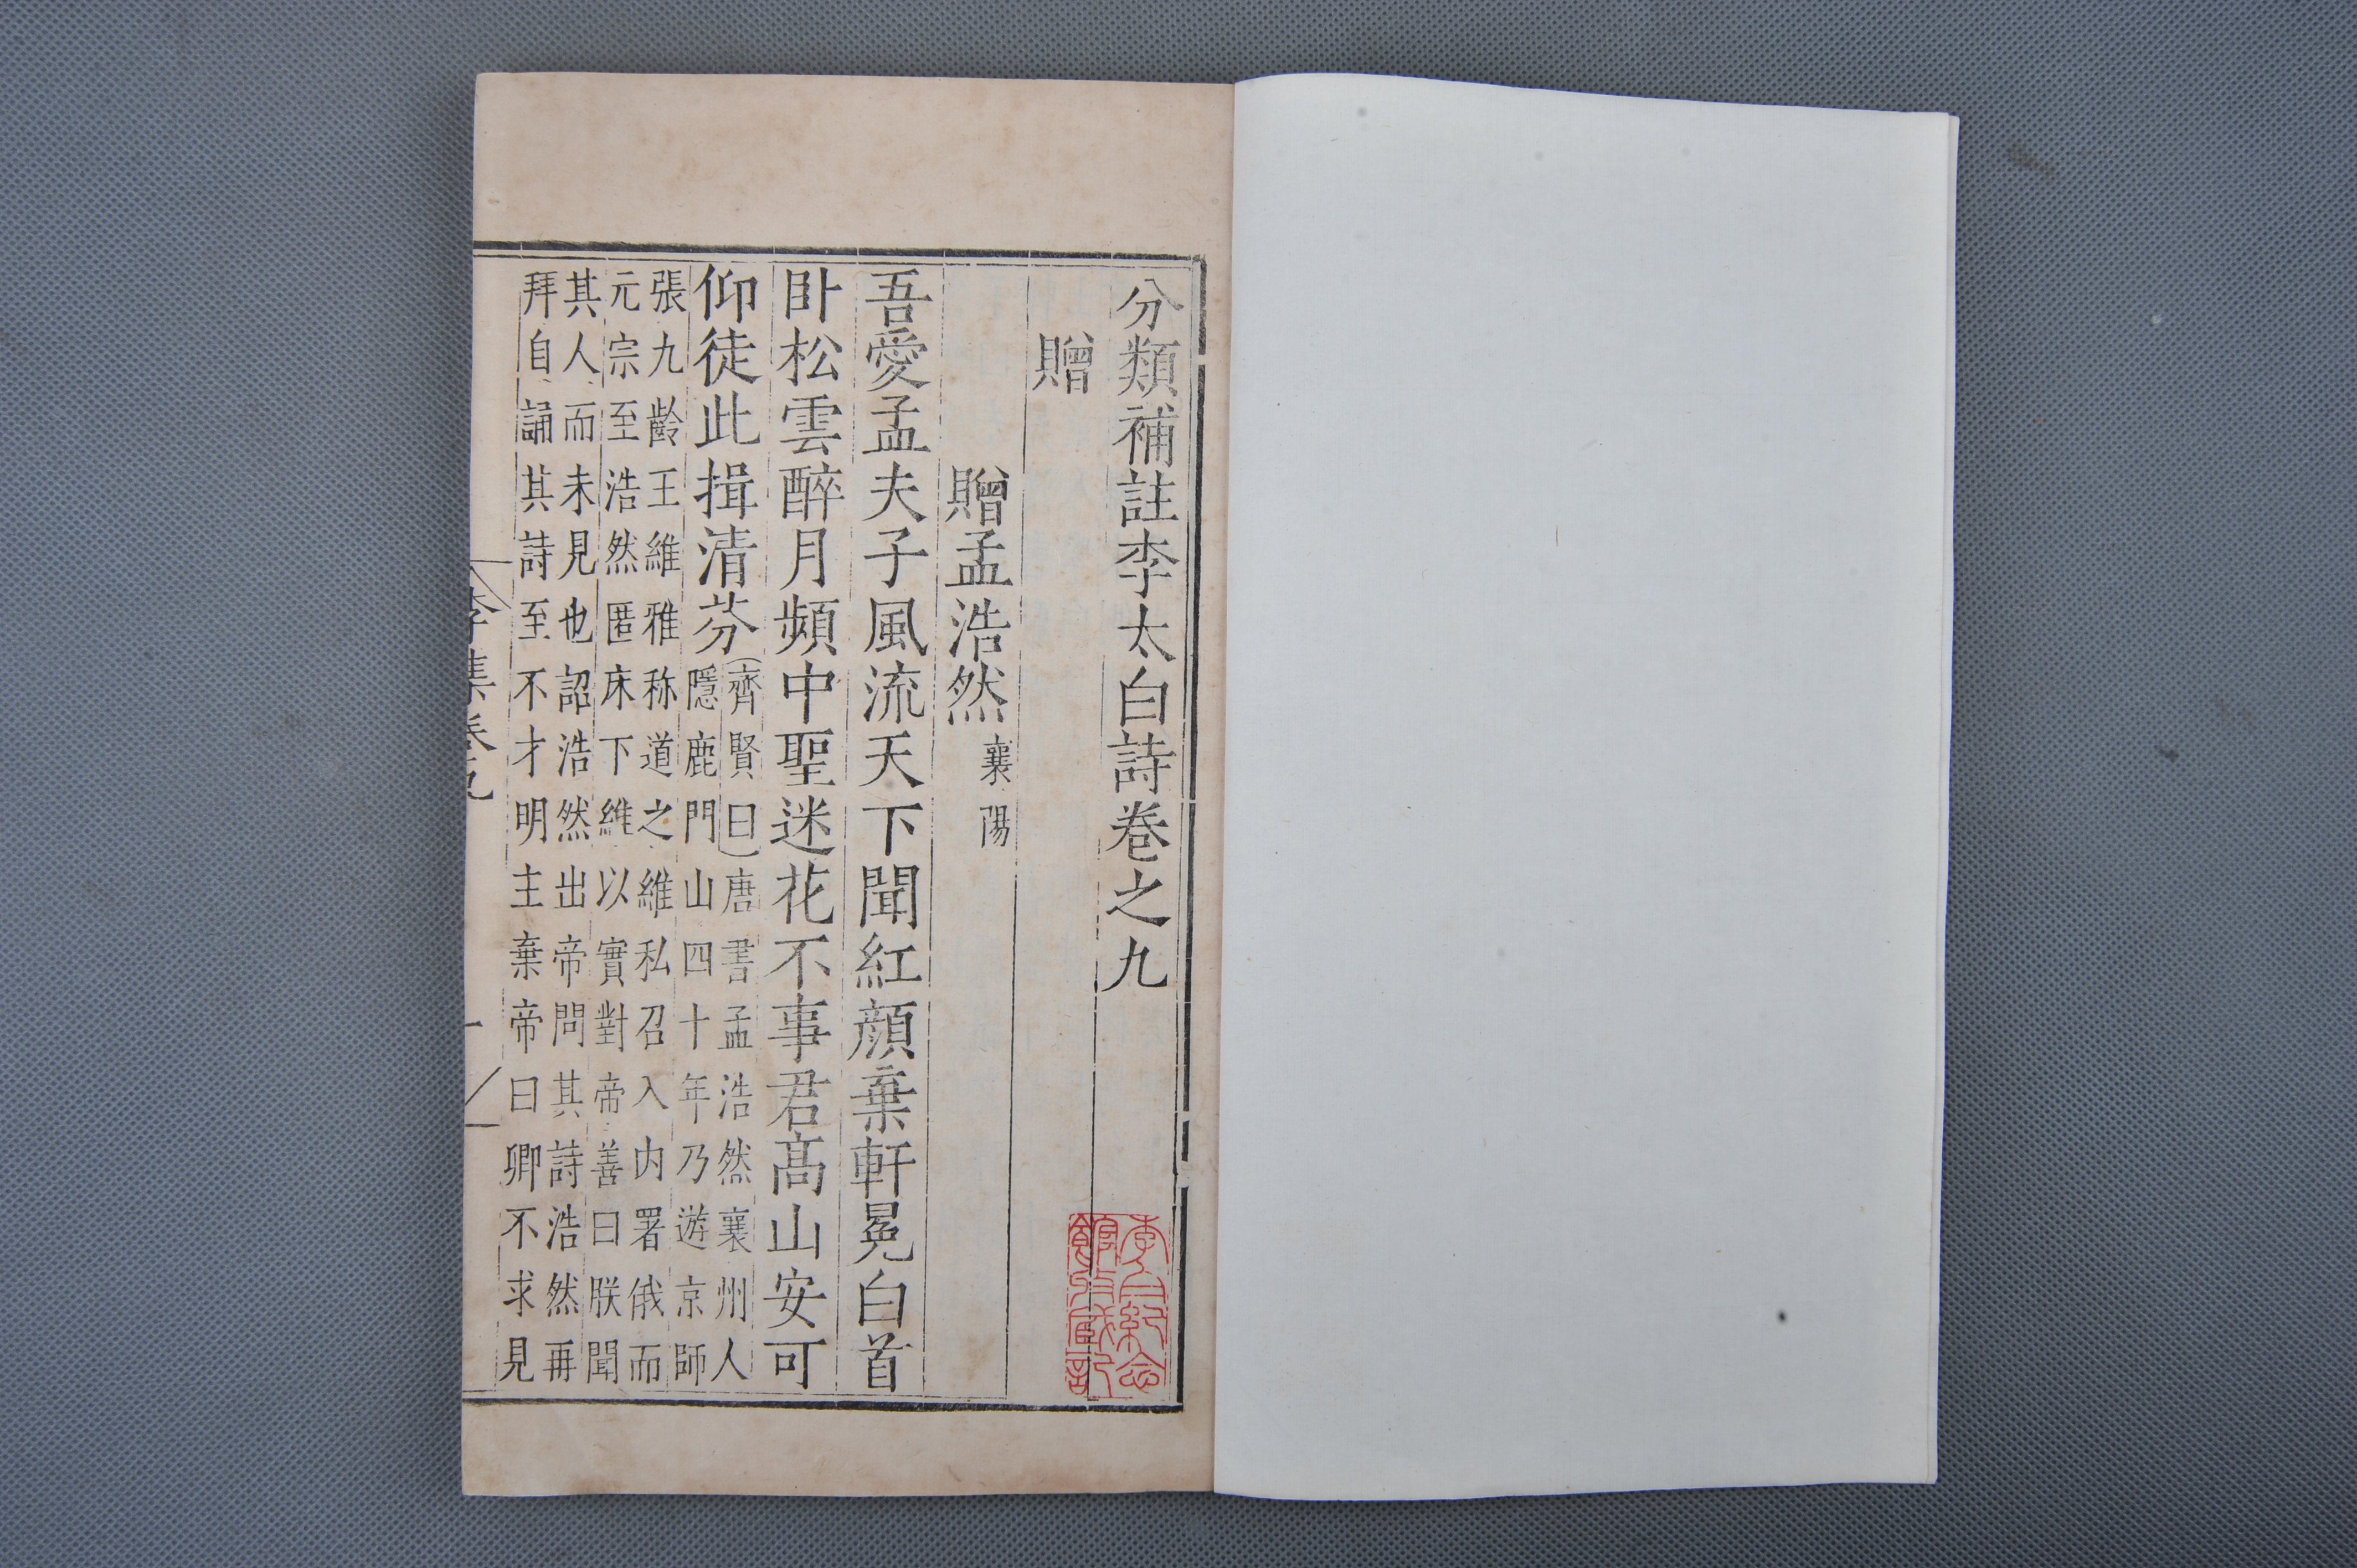 分類補註李太白詩卷之九
贈
贈孟浩然 襄陽
吾愛孟夫子風流天下聞紅顏棄軒冕白首
卧松雲醉月頻中聖迷花不事君髙山安可
仰徒此揖清芬
齊賢曰唐書孟浩然襄州人
隱鹿門山四十年乃遊京師
張九齡王維雅称道之維私召入内署俄而
元宗至浩然匿床下維以實對帝善曰朕聞
其人而未見也詔浩然出帝問其詩浩然再
拜自誦其詩至不才明主棄帝曰卿不求見
李集卷九
李白紀念
館收藏記